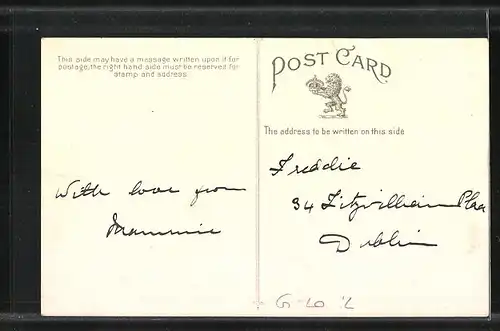 This side may have a message written upon it for
postage, the right hand side must be reserved for
stamp and address.
With love from
Mammie
POST CARD
The address to be written on this side
Freddie
34 Fitzwilliam Plaa
Dublin